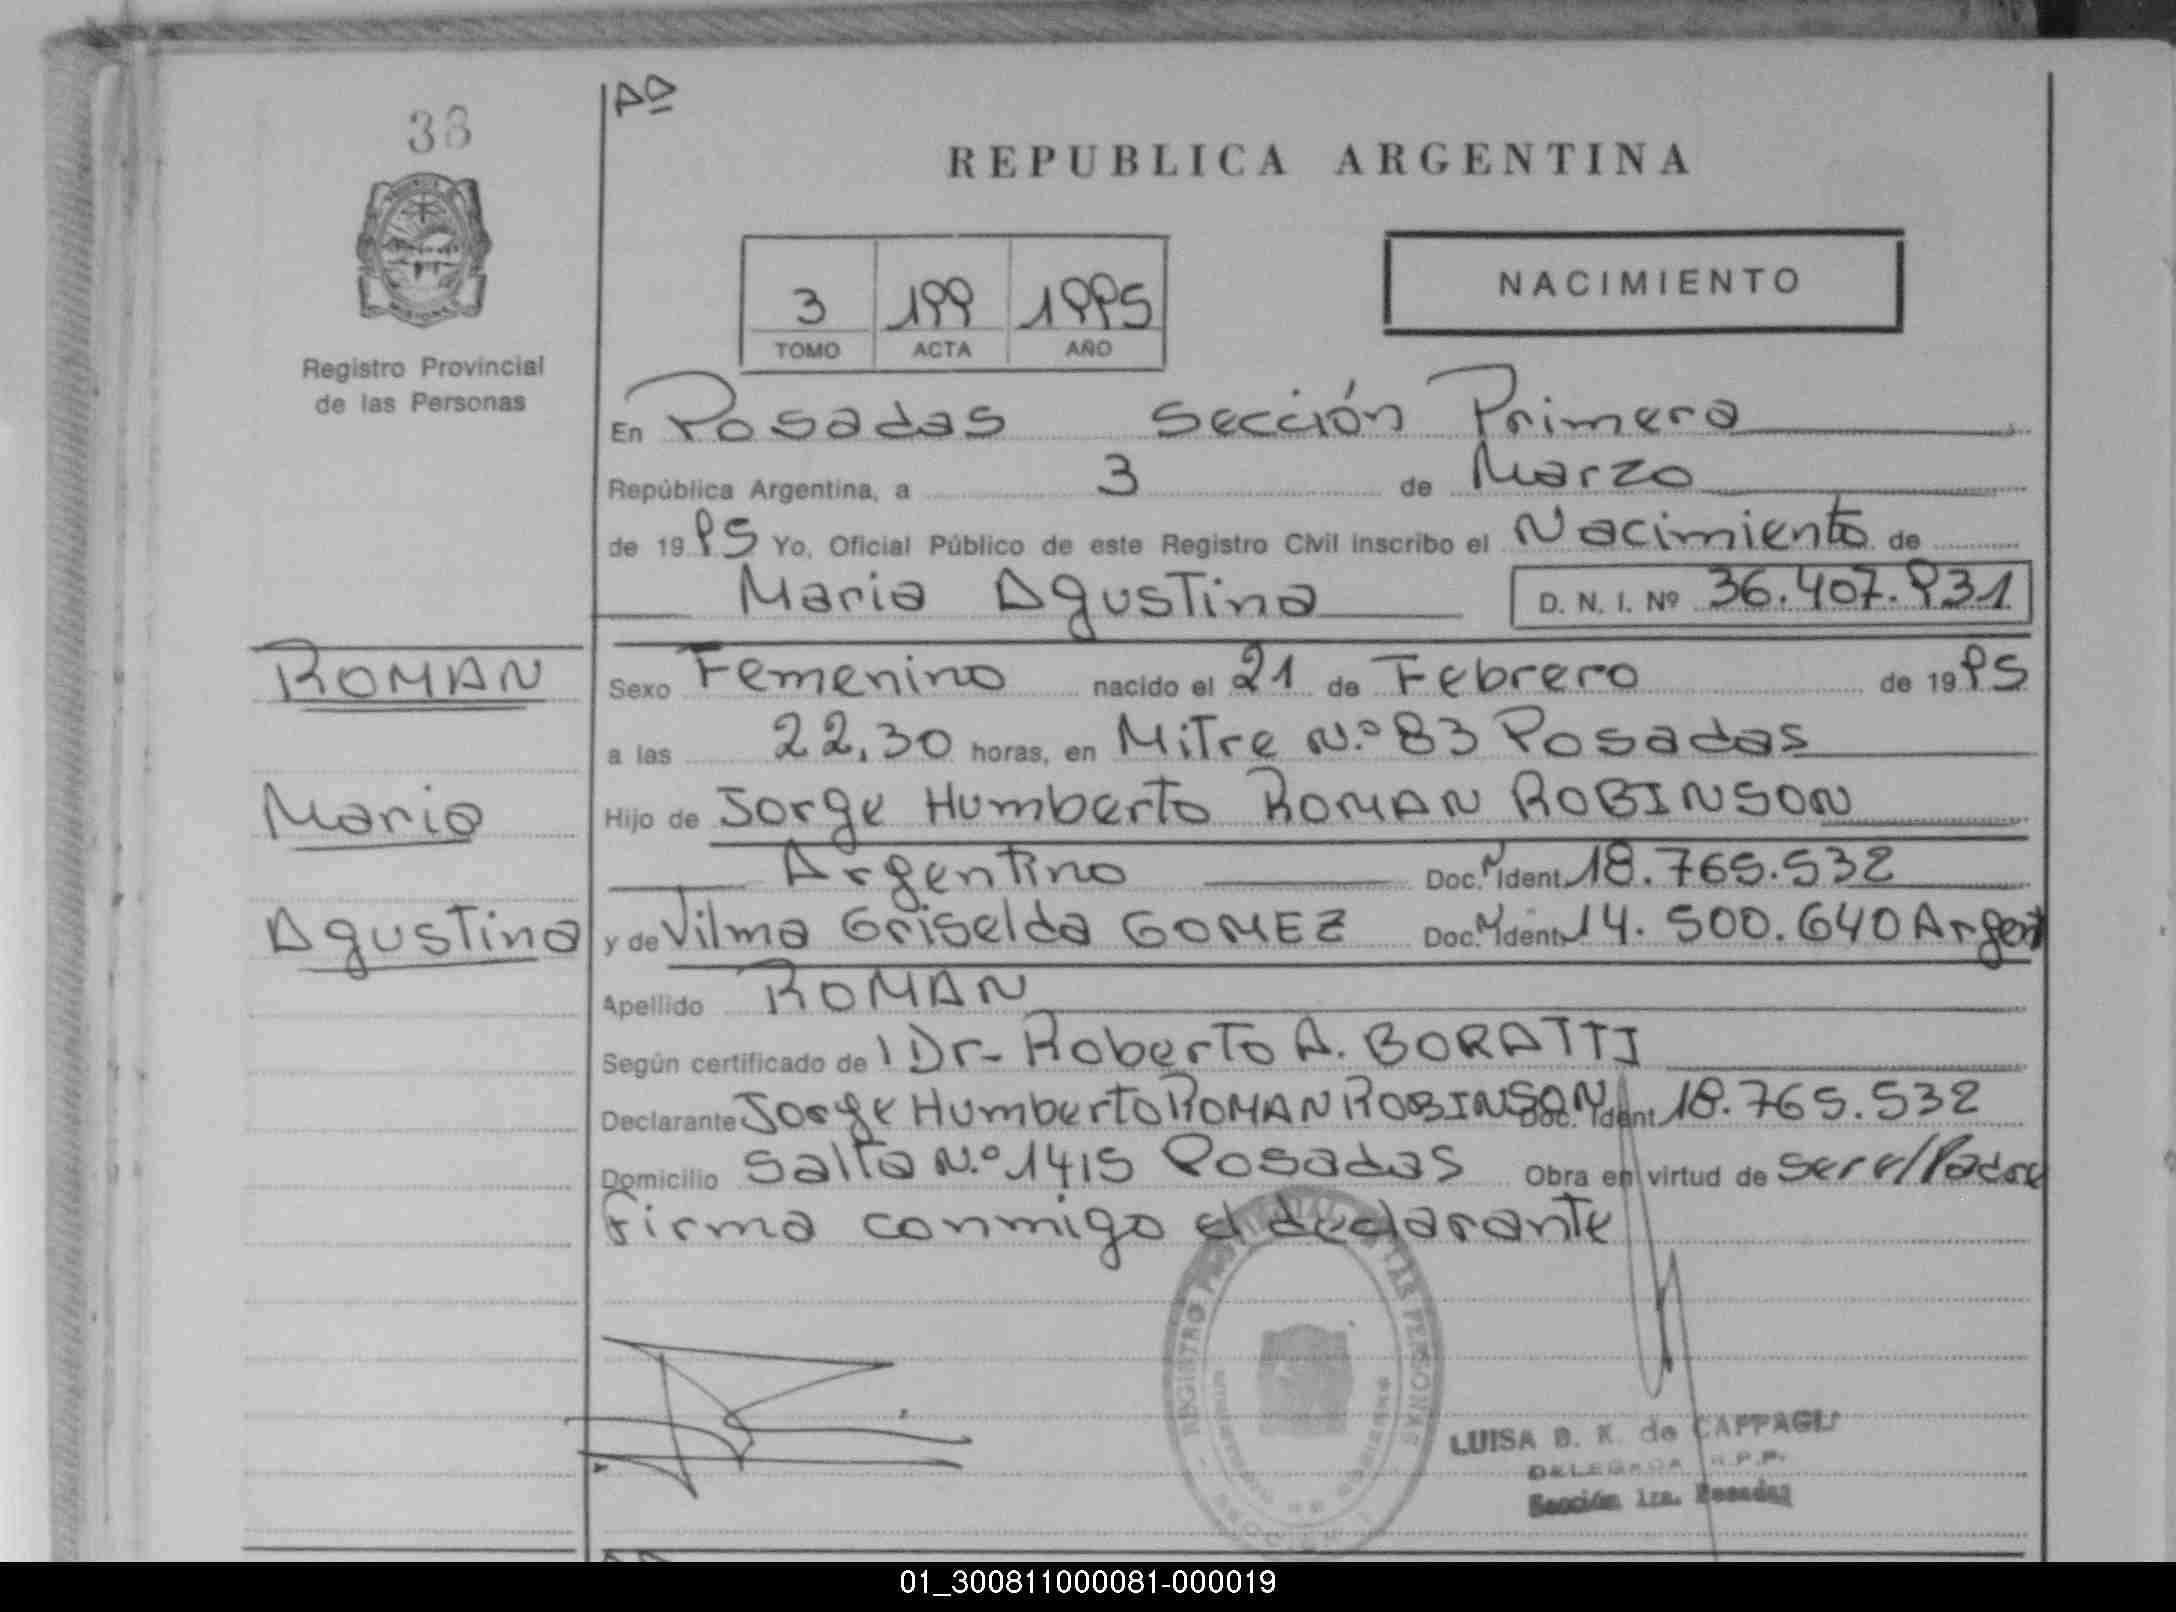 38
REPUBLICA ARGENTINA
NACIMIENTO
3 199 1995
TOMO ACTA AÑO
Registro Provincial
de las Personas
En Posadas Sección Primera
República Argentina, a 3 de Marzo
de 1995 Yo, Oficial Público de este Registro Civil inscribo el Nacimiento de
Maria Agustina D. N. I. Nº 36.407.931
ROMAN
Maria
Agustina
Sexo Femenino nacido el 21 de Febrero de 1995
a las 22,30 horas, en Mitre N.º 83 Posadas
Hijo de Jorge Humberto ROMAN ROBINSON
Argentino Doc. N Ident. 18.765.532
y de Vilma Griselda GOMEZ Doc. N Ident. 14.500.640 Argent
Apellido ROMAN
Según certificado de Dr- Roberto A. BORATTI
Declarante Jorge Humberto ROMAN ROBINSON Doc. Ident 18.765.532
Domicilio Salta N.º 1415 Posadas Obra en virtud de ser el Padre
Firma conmigo el declarante
REGISTRO PROVINCIAL DE LAS PERSONAS
MINISTERIO DE GOBIERNO
LUISA B. K. de CAPPAGLI
DELEGADA R.P.P.
Sección 1ra. Posadas
01_300811000081-000019